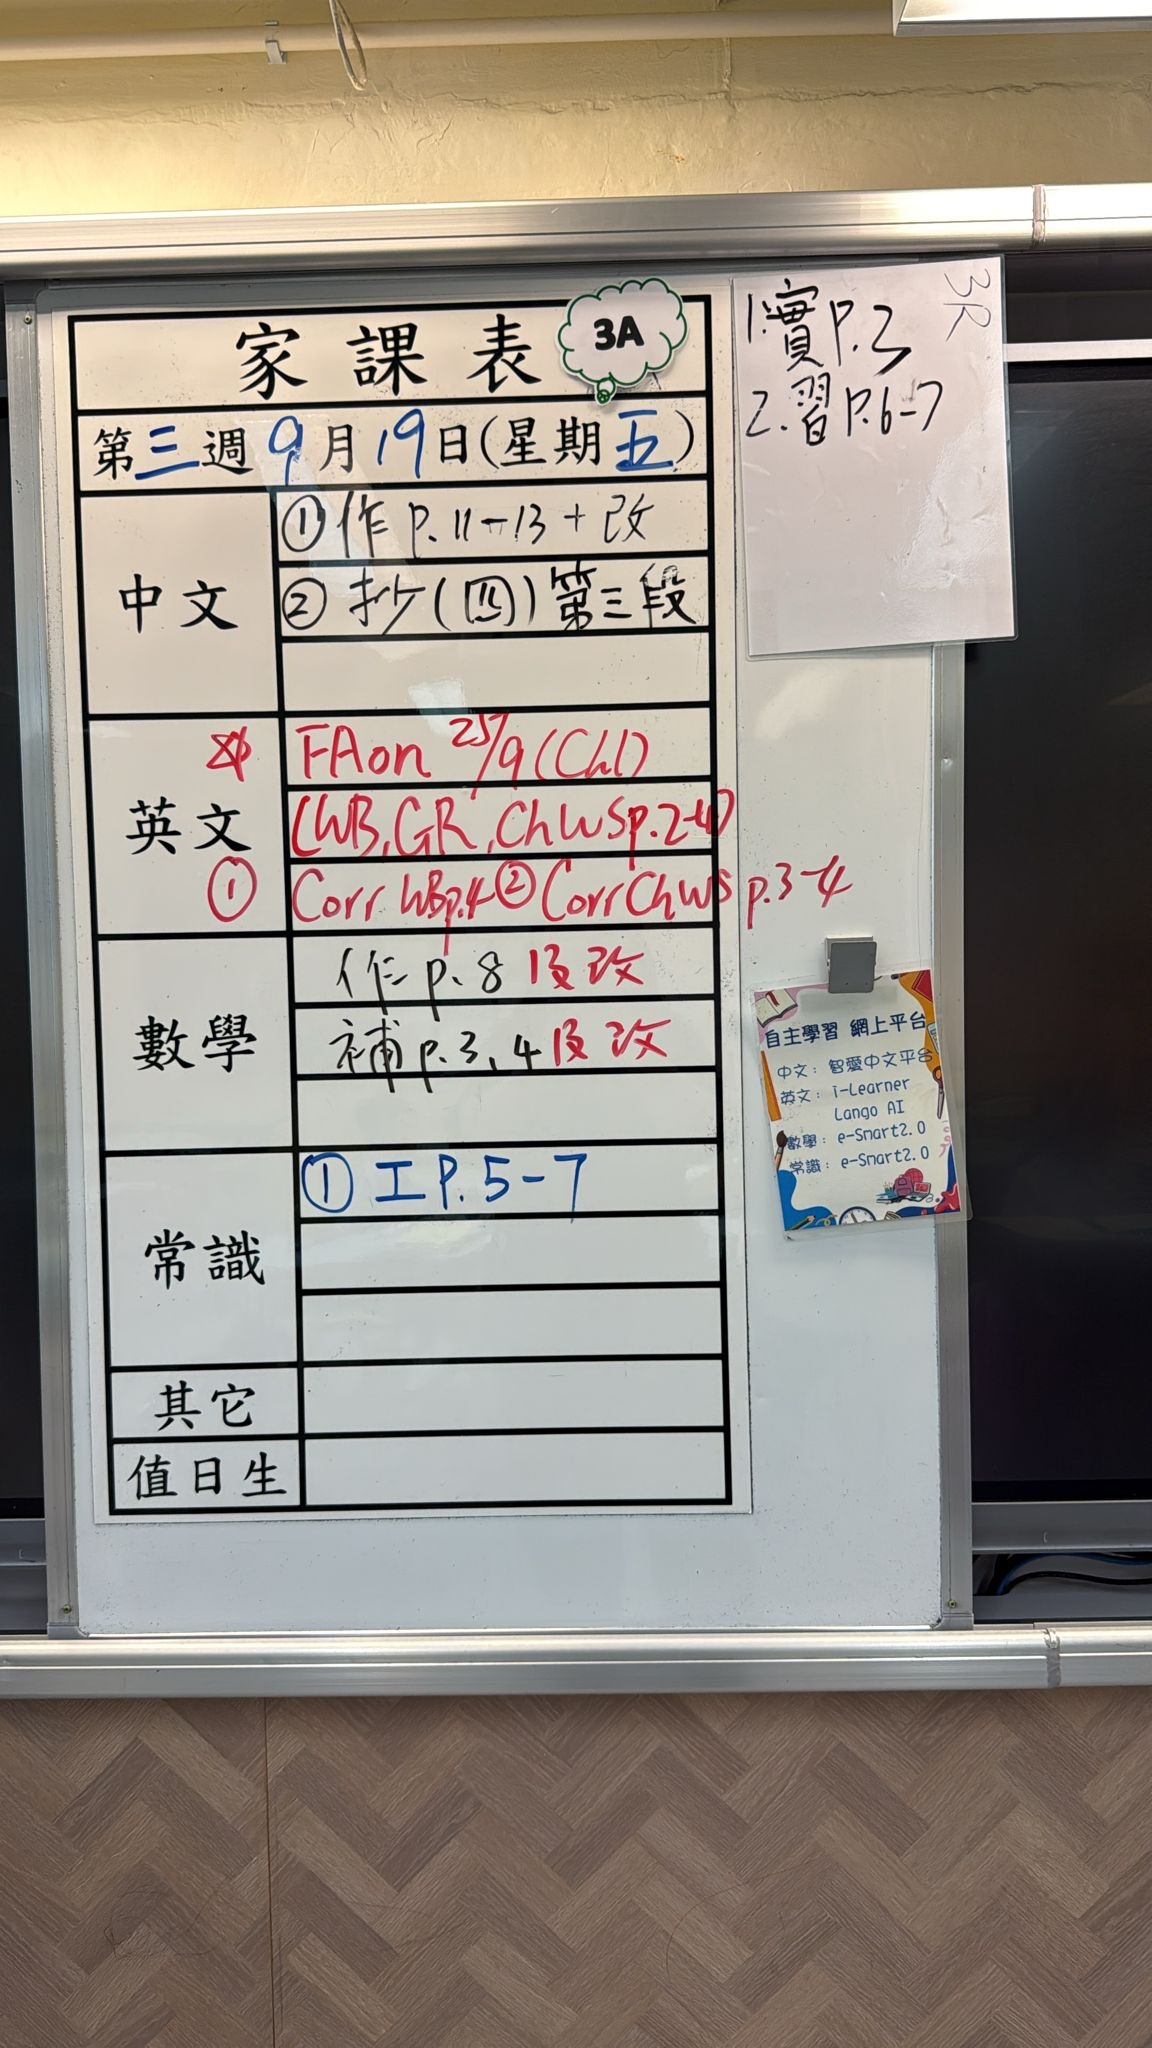 家課表
3A
第三週9月19日(星期五)
中文
①作P.11-13+改
②抄(四)第三段
英文
☆ FA on 25/9 (Ch1)
(WB, GR, ChWS p.2-4)
① Corr WB p.4 ② Corr ChWS p.3-4
數學
作p.8 及改
補p.3、4 及改
常識
①工P.5-7
其它
值日生
3R
1.實P.3
2.習P.6-7
自主學習 網上平台
中文：智愛中文平台
英文：i-Learner
Lango AI
數學：e-Smart2.0
常識：e-Smart2.0